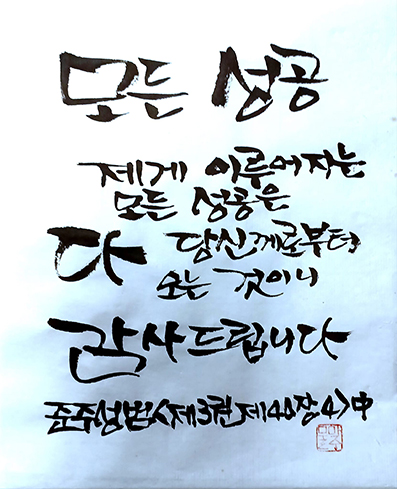 모든 성공
제게 이루어지는
모든 성공은
다 당신께로부터
오는 것이니
감사드립니다
준주성범<제3권 제40장4>中